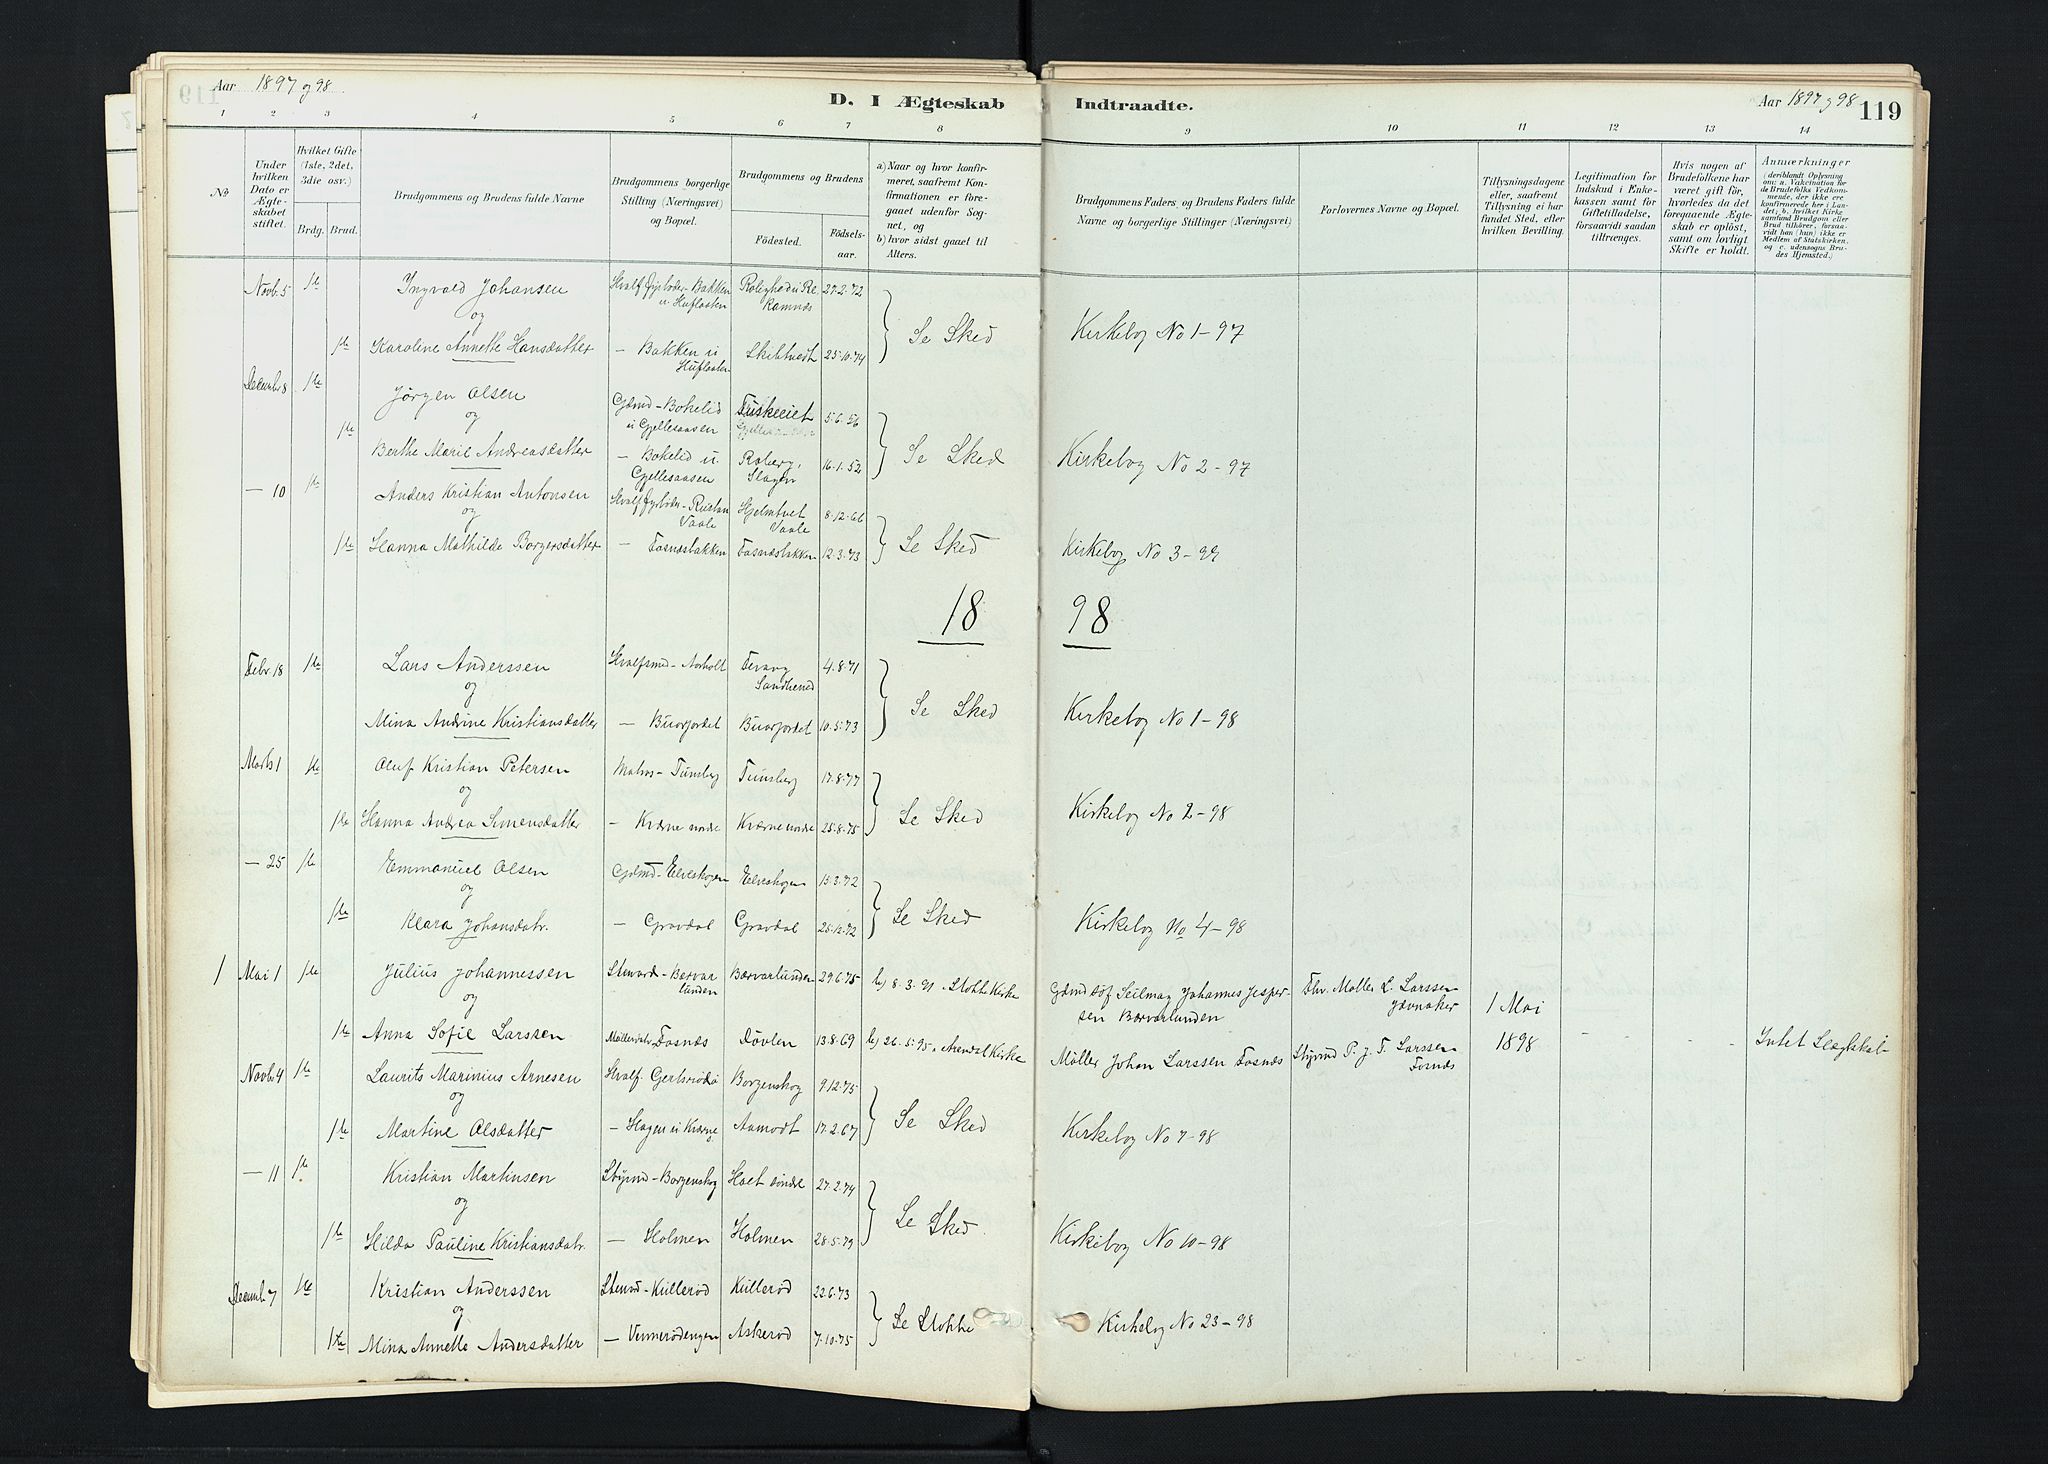 Aar 1897 og 98.
D. I Ægteskab Indtraadte.
Aar 1897 og 98
119
1 2 3 4 5 6 7 8 9 10 11 12 13 14
No
Under hvilken Dato er Ægteskabet stiftet.
Hvilket Gifte (1ste, 2det, 3die osv.)
Brdg. Brud.
Brudgommens og Brudens fulde Navne
Brudgommens borgerlige Stilling (Næringsvei) og Bopæl.
Brudgommens og Brudens
Fødested.
Fødselsaar.
a) Naar og hvor konfirmeret, saafremt Konfirmationen er foregaaet udenfor Sognet, og
b) hvor sidst gaaet til Alters.
Brudgommens Faders og Brudens Faders fulde Navne og borgerlige Stillinger (Næringsvei)
Forlovernes Navne og Bopæl.
Tillysningsdagene eller, saafremt Tillysning ei har fundet Sted, efter hvilken Bevilling.
Legitimation for Indskud i Enkekassen samt for Giftetilladelse, forsaavidt saadan tiltrænges.
Hvis nogen af Brudefolkene har været gift før, hvorledes da det foregaaende Ægteskab er opløst, samt om lovligt Skifte er holdt.
Anmærkninger
(deriblandt Oplysning om: a. Vakcination for de Brudefolks Vedkommende, der ikke ere konfirmerede her i Landet; b. hvilket Kirkesamfund Brudgom eller Brud tilhører, forsaavidt han (hun) ikke er Medlem af Statskirken, og c. udensogns Brudes Hjemsted.)
Novb. 5 1ste Ingvald Johansen Hvalf. Gaardbr. Bakken u Huflaaten Ramnæs 27-2-72
og
Se Sked Kirkebog No 1-97
1ste Karoline Annette Hansdatter - Bakken u Huflaaten Skibtvedt 25-10-74
Decembr 8 1ste Jørgen Olsen Gdmd - Bokelid u Gjellesaasen 5-6-56
og
Se Sked Kirkebog No 2-97
1ste Berthe Marie Andreasdatter - Bokelid u. Gjellesaasen Roberg, Slagen 16-1-52
- 10 1ste Anders Kristian Antonsen Vaale Hjelmtvet Vaale 8-12-66
og
Se Sked Kirkebog No 3-97
1ste Hanna Mathilde Borgersdatter - Fosnæsbakken Fosnæsbakken 12-3-73
18 98
Febr 18 1ste Lars Anderssen Hvalfmd - Aarholt Sandhered 4-8-71
og
Se Sked Kirkebog No 1-98
Mina Andrine Kristiansdatter - Buarjordet Buarjordet 10-5-73
Marts 1 1ste Oluf Kristian Petersen Matros - Tunsberg Tunsberg 17-8-77
og
Se Sked Kirkebog No 2-98
1ste Hanna Andrea Simensdatter - Kværne nordre Kværne nordre 25-8-75
- 25 1ste Emmanuel Olsen Gdmd - Elveskogen Elveskogen 15-3-72
og
Se Sked Kirkebog No 4-98
1ste Klara Johansdatr. - Gravdal Gravdal 25-12-72
1 Mai 1 1ste Julius Johannessen Steward - Bærvarlunden Bærvarlunden 29-6-75 b) 8-3-91, Stokke Kirke Gdmd og Seilmag Johannes Jespersen Bærvarlunden Fhv. Møller L. Larssen Jævnaker 1 Mai
og
1ste Anna Sofie Larssen Fosnæs Døvlen 13-8-69 b) 26-5-95, Arendal Kirke Møller Johan Larssen Fosnæs Styrmd P. J. T. Larssen Fosnæs 1898 - - - Intet Slægtskab
Novb 4 1ste Laurits Marinius Arnesen Hvalf. Gjertsrød Borgenskog 9-12-75
og
Se Sked Kirkebog No 7-98
1ste Martine Olsdatter - Hagen u Kværne Aamodt 17-2-67
- 11 1ste Kristian Martinsen Styrmd - Borgenskog Holt søndre 27-2-74
og
Se Sked Kirkebog No 10-98
1ste Hilda Pauline Kristiansdatr. - Holmen Holmen 28-5-79
Decembr 7 1ste Kristian Anderssen Kullerød Kullerød 22-6-73
og
Se Stokke Kirkebog No 23-98
1ste Mina Annette Andersdatter - Vennerødengen Askerød 7-10-75